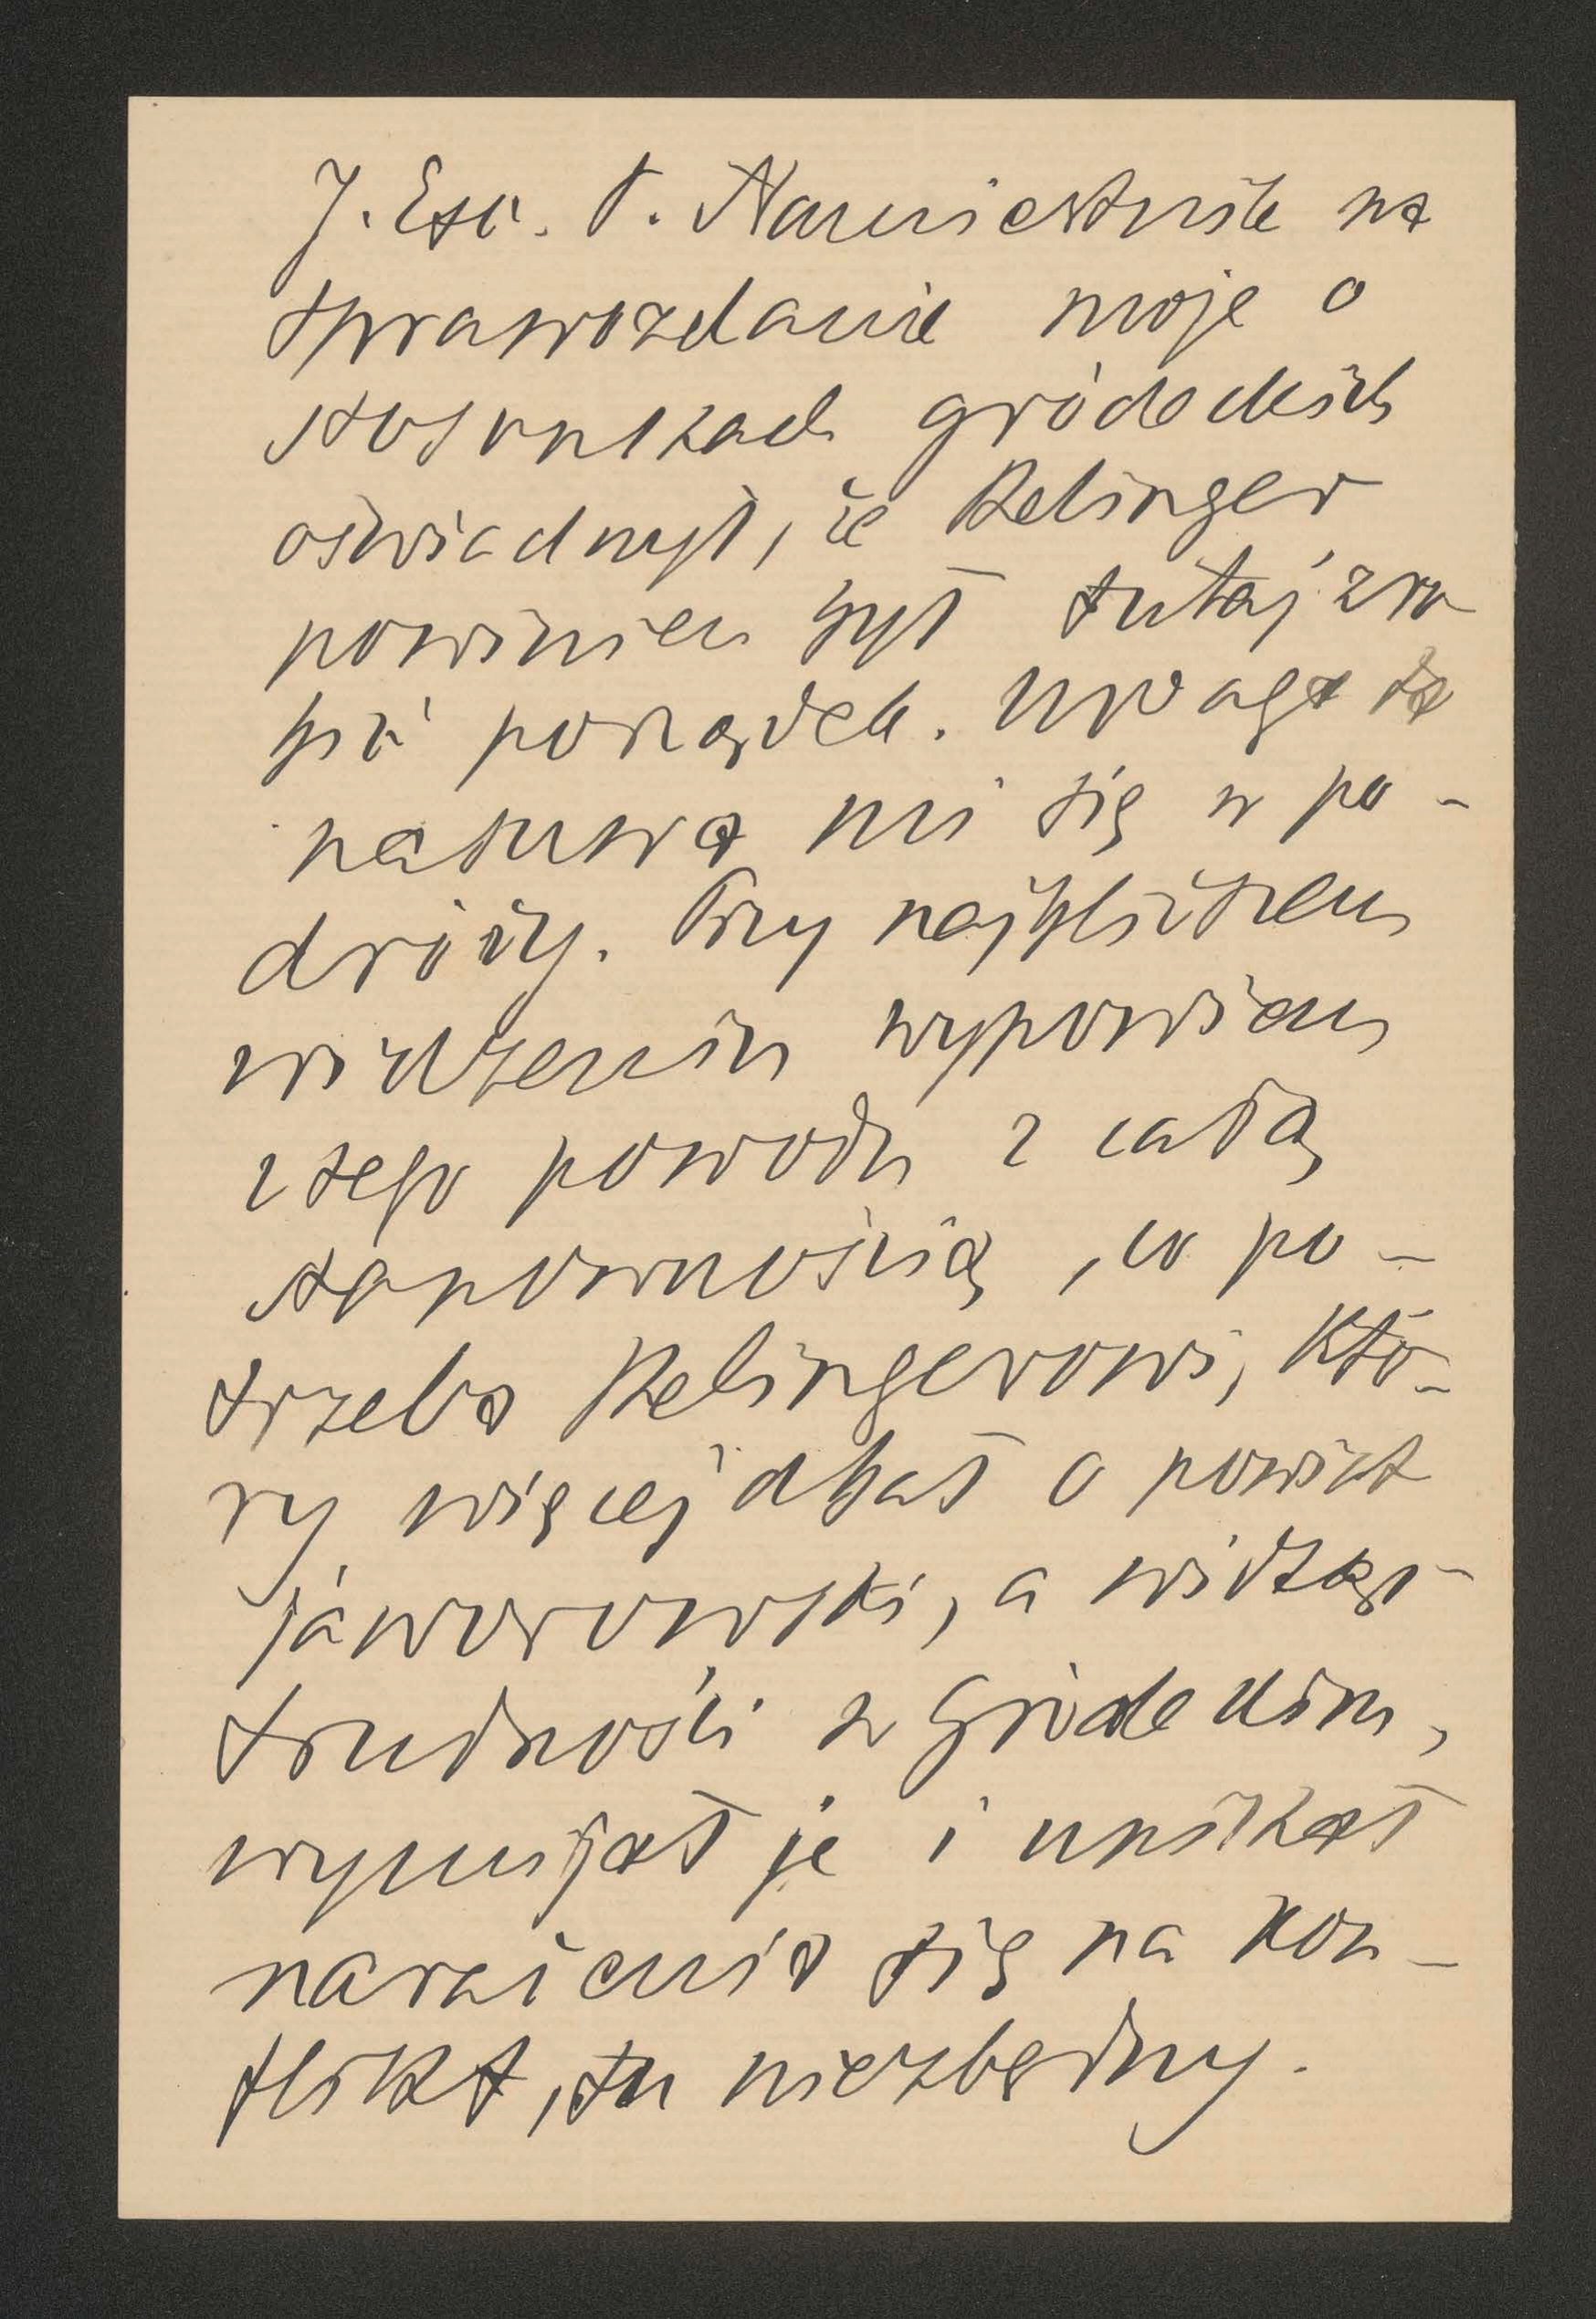 J. Exc. P. Namiestnik na
sprawozdanie moje o
stosunkach gródeckich
oświadczył, że Relinger
powinien był tutaj zro
bić porządek. Uwaga ta
nasuwa mi się w po-
dróży. Przy najbliższem
widzeniu wypowiem
z tego powodu z całą
stanowczością, co po-
trzeba Relingerowi, któ-
ry więcej dbał o powiat
jaworowski, a widząc
trudności w Gródeckim,
wymijał je i unikał
narażenia się na kon-
flikt, tu niezbędny.